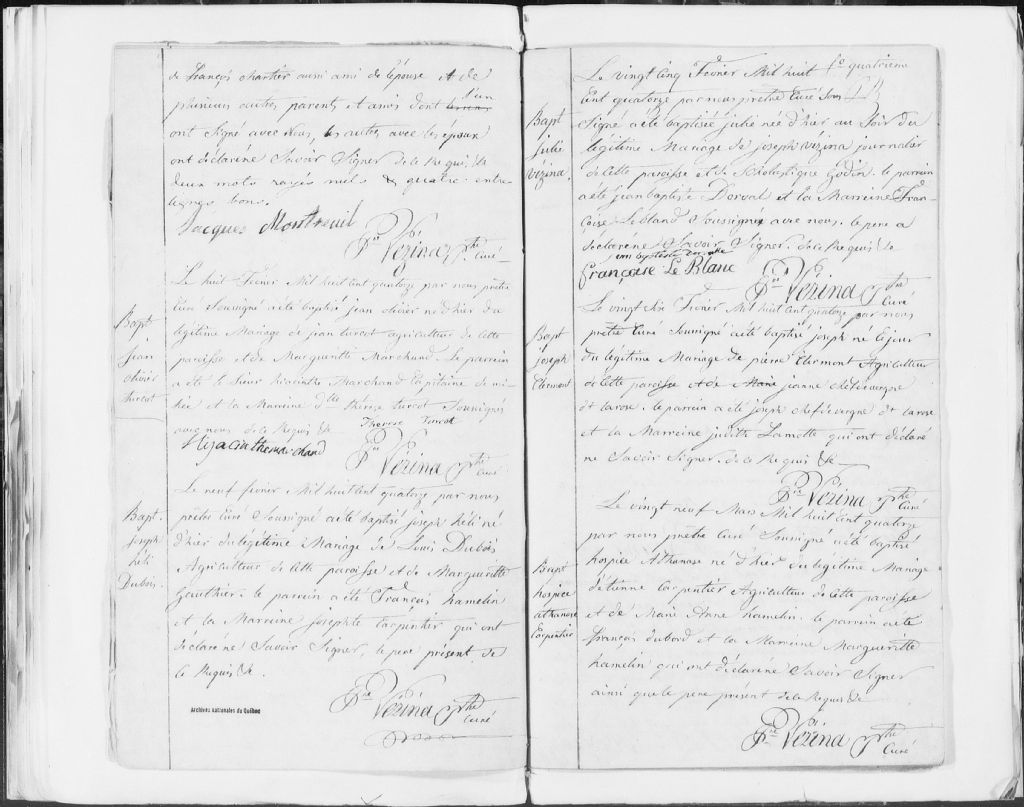 de françois chartier aussi ami de l'épouse et de
plusieurs autres parents et amis dont l'un
ont signé avec nous, les autres avec les époux
ont déclaré ne savoir signer de ce requis &c
deux mots rayés nuls & quatre entre
lignes bons.
Jacques Montreuil
Vézina ptre curé
Bapt.
jean
olivier
turcot
Le huit février mil huit cent quatorze par nous prêtre
curé soussigné a été baptisé jean olivier né d'hier du
légitime mariage de jean turcot agriculteur de cette
paroisse et de Margueritte Marchand. le parrein
a été le sieur hiacinthe Marchand capitaine de mi-
lice et la Marreine dlle thérèse turcot soussignés
avec nous de ce requis &c
Therese Turcot
Hyacinthe marchand
Vézina ptre curé
Bapt.
joseph
héli
Dubois.
Le neuf fevrier mil huit cent quatorze par nous
prêtre curé soussigné a été baptisé joseph héli né
d'hier du légitime Mariage de Louis Dubois
Agriculteur de cette paroisse et de Marguerite
Gauthier. le parrein a été François hamelin
et la Marreine josephte Carpentier qui ont
déclaré ne savoir signer, le pere présent de
ce requis &c.
Vézina ptre curé
Archives nationales du Québec
fo quatrieme
Bapt
julie
vézina.
Le vingt cinq Février Mil huit
cent quatorze par nous prêtre curé sous
signé a été baptisée julie née d'hier au soir du
légitime Mariage de joseph vézina journalier
de cette paroisse et de Scholastique Godin. le parrein
a été jean baptiste Dorval et la Marreine Fran-
çoise Le blanc soussignés avec nous. le pere a
déclaré ne savoir signer. de ce requis &c
jean baptiste dorvalle
françoise Le Blanc
Vézina ptre curé
Bapt
joseph
Clermont
Le vingt six Février Mil huit cent quatorze par nous
prêtre curé soussigné a été baptisé joseph né le jour
du légitime Mariage de pierre Clermont Agriculteur
de cette paroisse et de Marie jeanne chefdevergne
dt larose. le parrein a été joseph chefdevergne dt larose
et la Marreine judith Lamotte qui ont déclaré
ne savoir signer de ce requis &c
Vézina ptre curé
Bapt
hospice
athanase
Carpentier
Le vingt neuf Mars Mil huit cent quatorze
par nous prêtre curé soussigné a été baptisé
hospice Athanase né d'hier du légitime Mariage
d'étienne Carpentier Agriculteur de cette paroisse
et de Marie Anne hamelin. le parrein a été
François dubord et la Marreine Marguerite
hamelin qui ont déclaré ne savoir signer
ainsi que le pere présent de ce requis &c
Vézina ptre curé